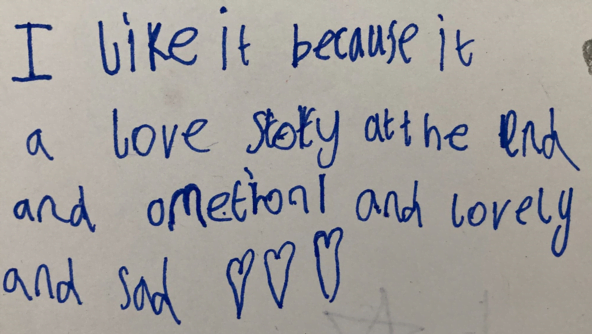 I like it because it
a love story at the end
and omethonl and lovely
and sad ♡♡♡